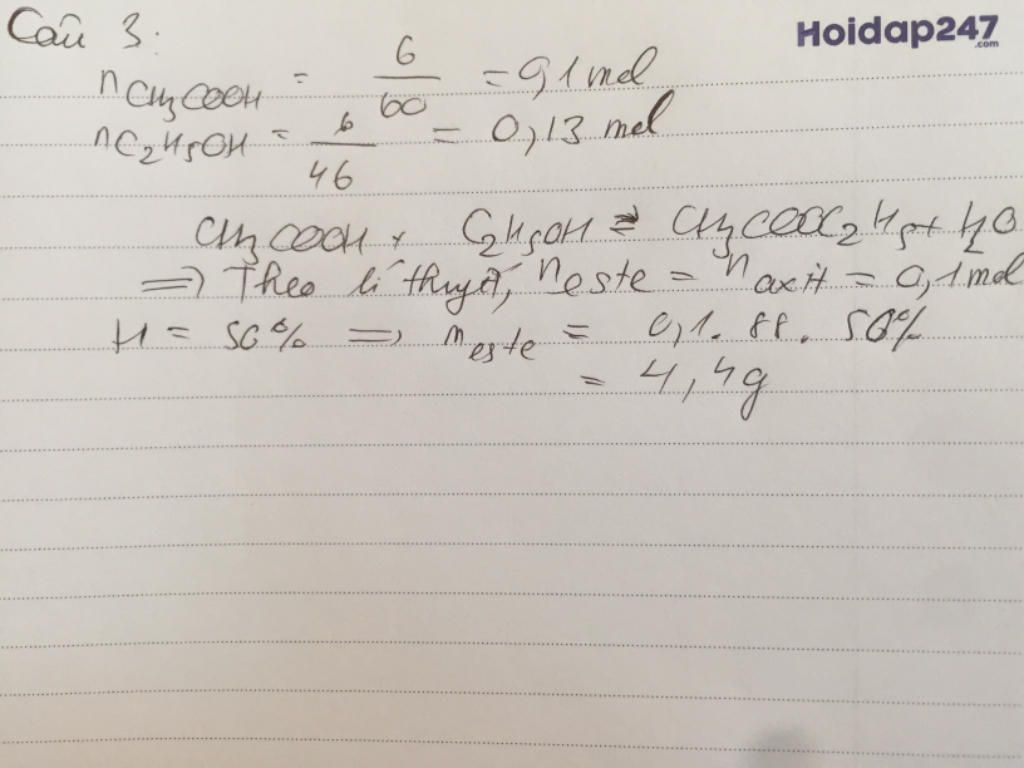 Câu 3:
Hoidap247
.com
nCH3COOH = 6/60 = 0,1 mol
nC2H5OH = 6/46 = 0,13 mol
CH3COOH + C2H5OH ⇌ CH3COOC2H5 + H2O
=> Theo lí thuyết, neste = naxit = 0,1mol
H = 50% => meste = 0,1 . 88 . 50%
= 4,4g